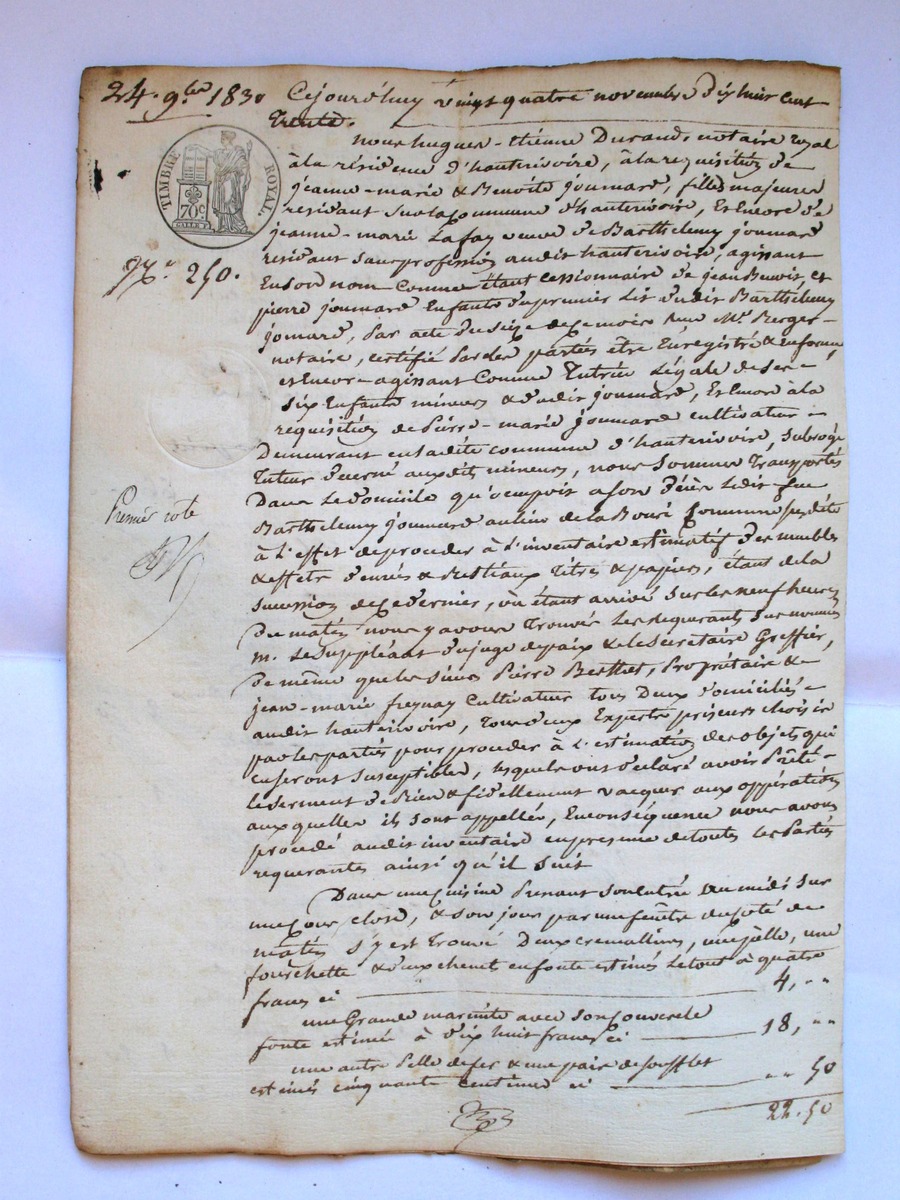 24. 9.bre 1830
Cejourd'huy vingt quatre novembre dix huit cent
trente.
TIMBRE ROYAL.
70c
nous hugues-étienne Durand, notaire royal
à la résidence d'hauterivoire, à la requisition de
jeanne-marie & Benoite joumard, filles majeures
residant sur la commune d'hauterivoire, Et Encore de
jeanne-marie Lafay veuve de Barthelemy joumard
residant sans profession audit hauterivoire, agissant
En son nom Comme étant Cessionnaire de jean Benoit, et
250.
pierre joumard Enfants du premier Lit dudit Barthélemy
joumard, par acte du seize de ce mois reçu Me. Berger
notaire, certifié par les parties être Enregistré & en forme,
et Encore agissant Comme Tutrice Légale de ses
six Enfants mineurs & dudit joumard, Et Encore à la
requisition de Pierre-marie joumard cultivateur
Demeurant en ladite commune d'hauterivoire, subrogé
Tuteur décerné auxdits mineurs, nous sommes Transportés
Dans Le Domicile qu'occupoit a son Décès Ledit feu
Premier role
Barthelemy joumard au lieu de la Commune susdite
à l'effet de proceder à l'inventaire estimatif des meubles
& effets denrées & Bestiaux Titres & papiers, étant de la
succession de ce dernier, où étant arrivé sur les neuf heures
Du matin nous y avons Trouvés Les requerants sus nommés
m. Le suppléant du juge de paix & le secretaire Greffier,
De même que les sieurs Pierre Berthet, Propriétaire &
jean-marie freynay Cultivateur tous Deux Domiciliés
audit hauterivoire, Tous deux Experts priseurs choisis
par les parties pour proceder à L'estimation des objets qui
en seront susceptibles, lesquels ont déclaré avoir Prêté
le serment de Bien & fidellement vacquer aux oppérations
auxquelles ils sont appellés, En conséquence nous avons
procédé audit inventaire en presence de toutes les Parties
requerantes ainsi qu'il suit
Dans une cuisine Prenant son entrée au midi sur
une Cour close, & son jour par une fenêtre du côté de
matin s'y est Trouvé Deux cremallieres, une pèlle, une
fourchette & deux chenets en fonte estimés Le tout à quatre
francs ci 4, " "
une Grande marmite avec son Couvercle
fonte estimée à Dix huit francs ci 18, " "
une autre Pelle de fer & une paire de soufflet
estimés cinquante centimes ci " " 50
22. 50